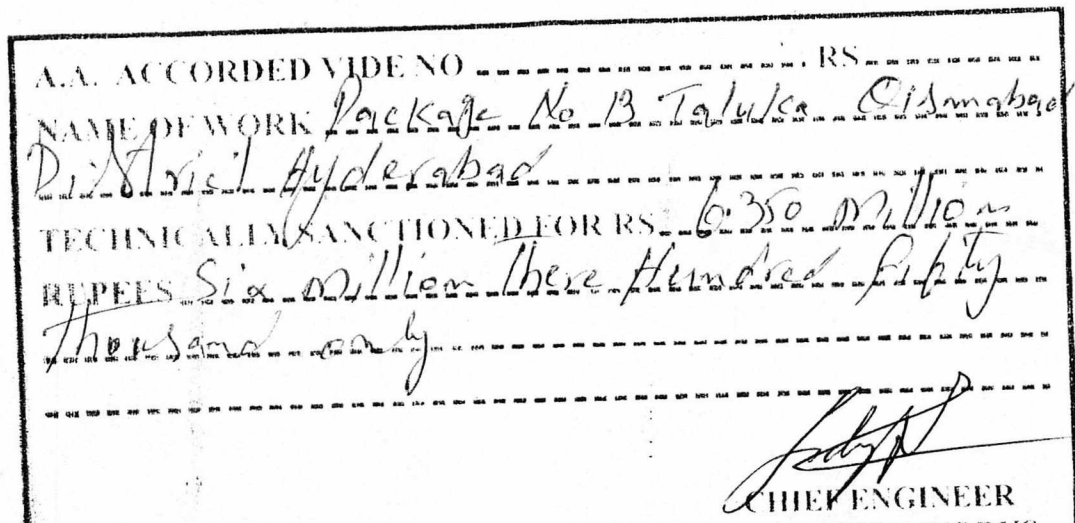 A.A. ACCORDED VIDE NO ................ RS................
NAME OF WORK Package No 13 Taluka Qismabad
District Hyderabad
TECHNICALLY SANCTIONED FOR RS. 6.350 Million
RUPEES Six Million there Hundred fifity
Thousand only
CHIEF ENGINEER